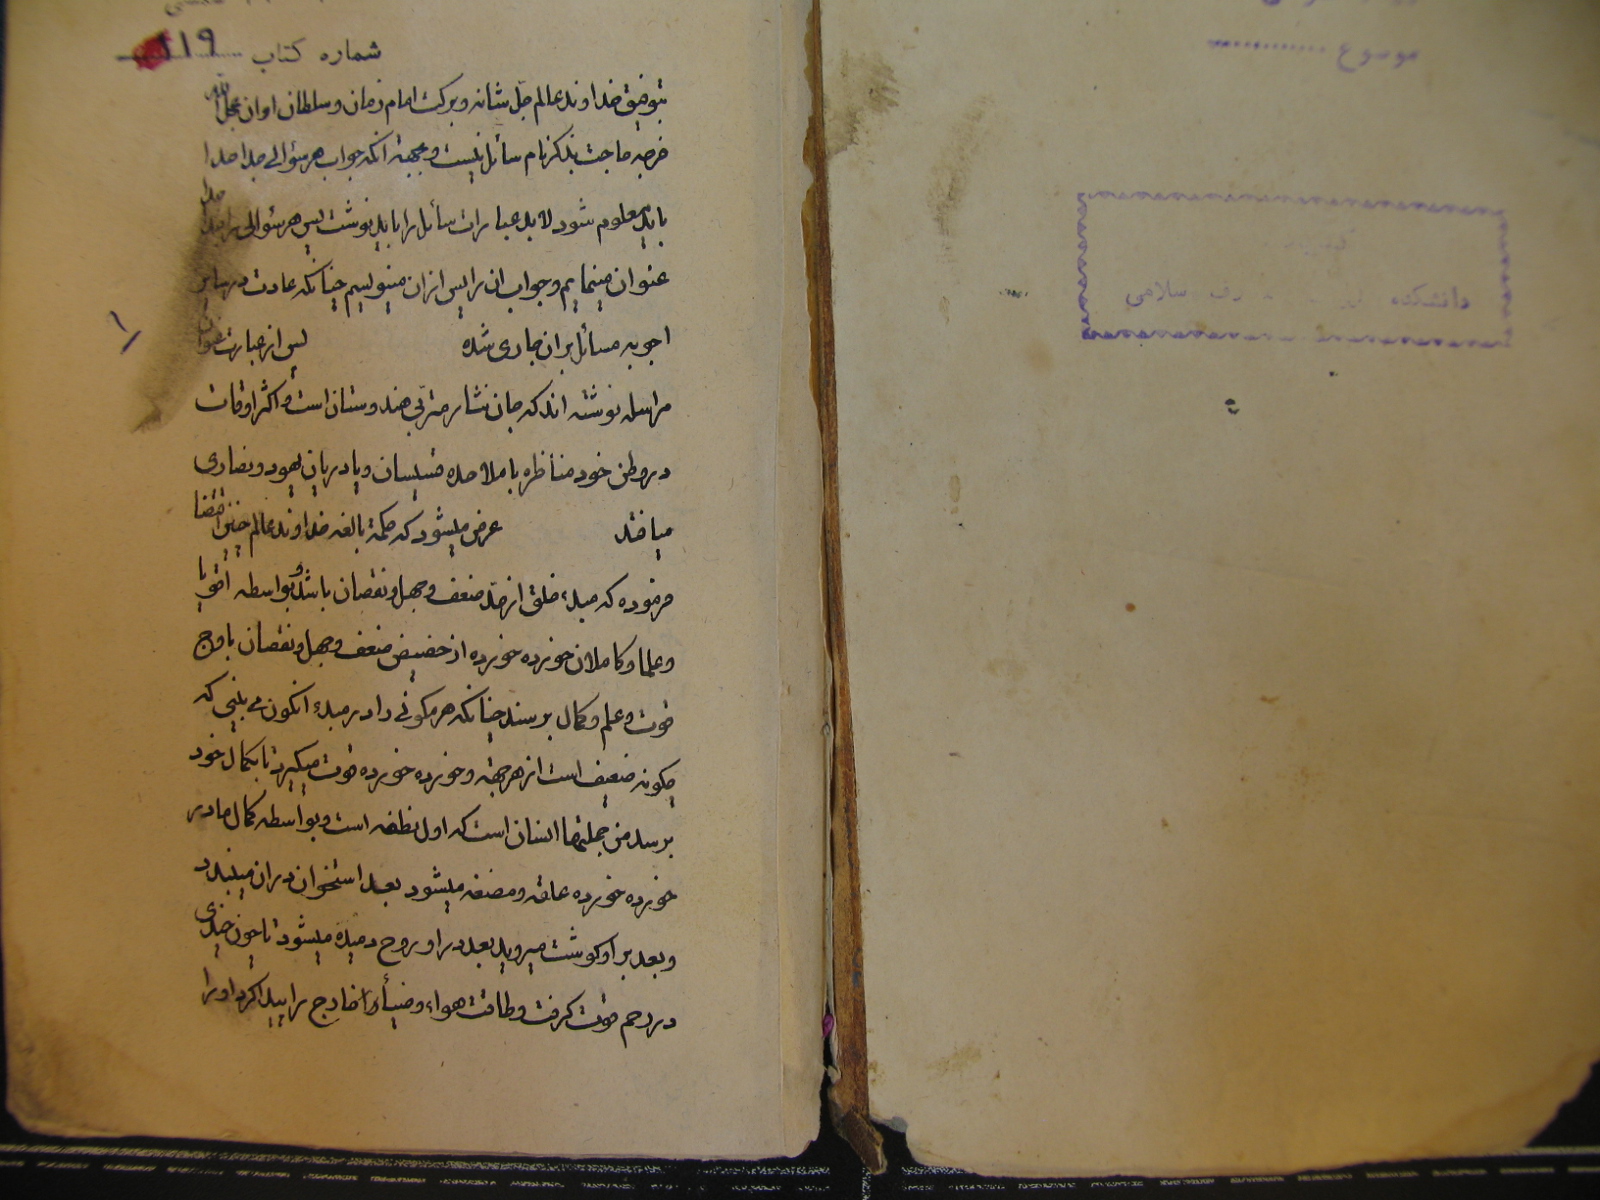 موضوع
دانشکده سلامی
شماره کتاب ۱۱۹
بتوفیق خداوند عالم جل شانه و برکت امام زمان و سلطان اوان عجل الله
فرجه حاجت بذکر نام سائل نیست و بجهة انکه جواب هر سؤالی جدا جدا
باید معلوم شود لابد عبارات سائل را باید نوشت پس هر سئوالی را جدا جدا
عنوان مینمایم و جواب ان را پس از ان مینویسیم چنانکه عادت در سایر
اجوبه مسائل بران جاری شده پس از عبارت عنوان
مراسله نوشته اند که جان نثار متربی هندوستان است و اکثر اوقات
در وطن خود مناظره با ملاحده قسیسان و پادریان یهود و نصاری
میافتد عرض میشود که حکمة بالغه خداوند عالم چنین اقتضا
فرموده که مبدء خلق از حد ضعف و جهل و نقصان باشد و بواسطه اقویا
و علما و کاملان خورده خورده از حضیض ضعف و جهل و نقصان باوج
قوت و علم و کمال برسند چنانکه هر مکونی را در مبدء انکون می بینی که
چکونه ضعیف است از هر جهة و خورده خورده قوت میکیرد تا بکمال خود
برسد من جملتها انسان است که اول نطفه است و بواسطه کمال مادر
خورده خورده علقه و مضغه میشود بعد استخوان در ان میبندد
و بعد بر او کوشت میروید بعد در او روح دمیده میشود تا چون چندی
در رحم قوت کرفت و طاقت هواء و ضیاء خارج را پیدا کرد او را